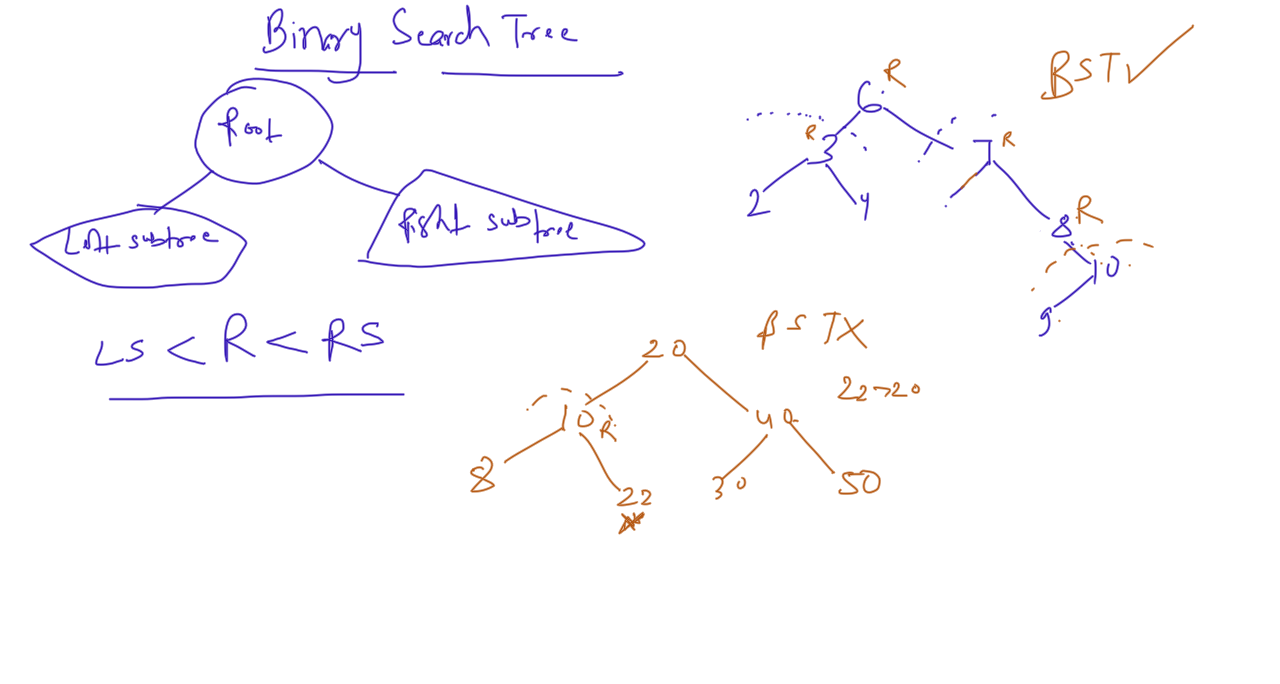 Binary Search Tree
Root
Left subtree
Right subtree
LS < R < RS
BST✓
6 R
R 3
7 R
2
4
8 R
10
9
BST X
20
22>20
10 R
40
8
22
30
50